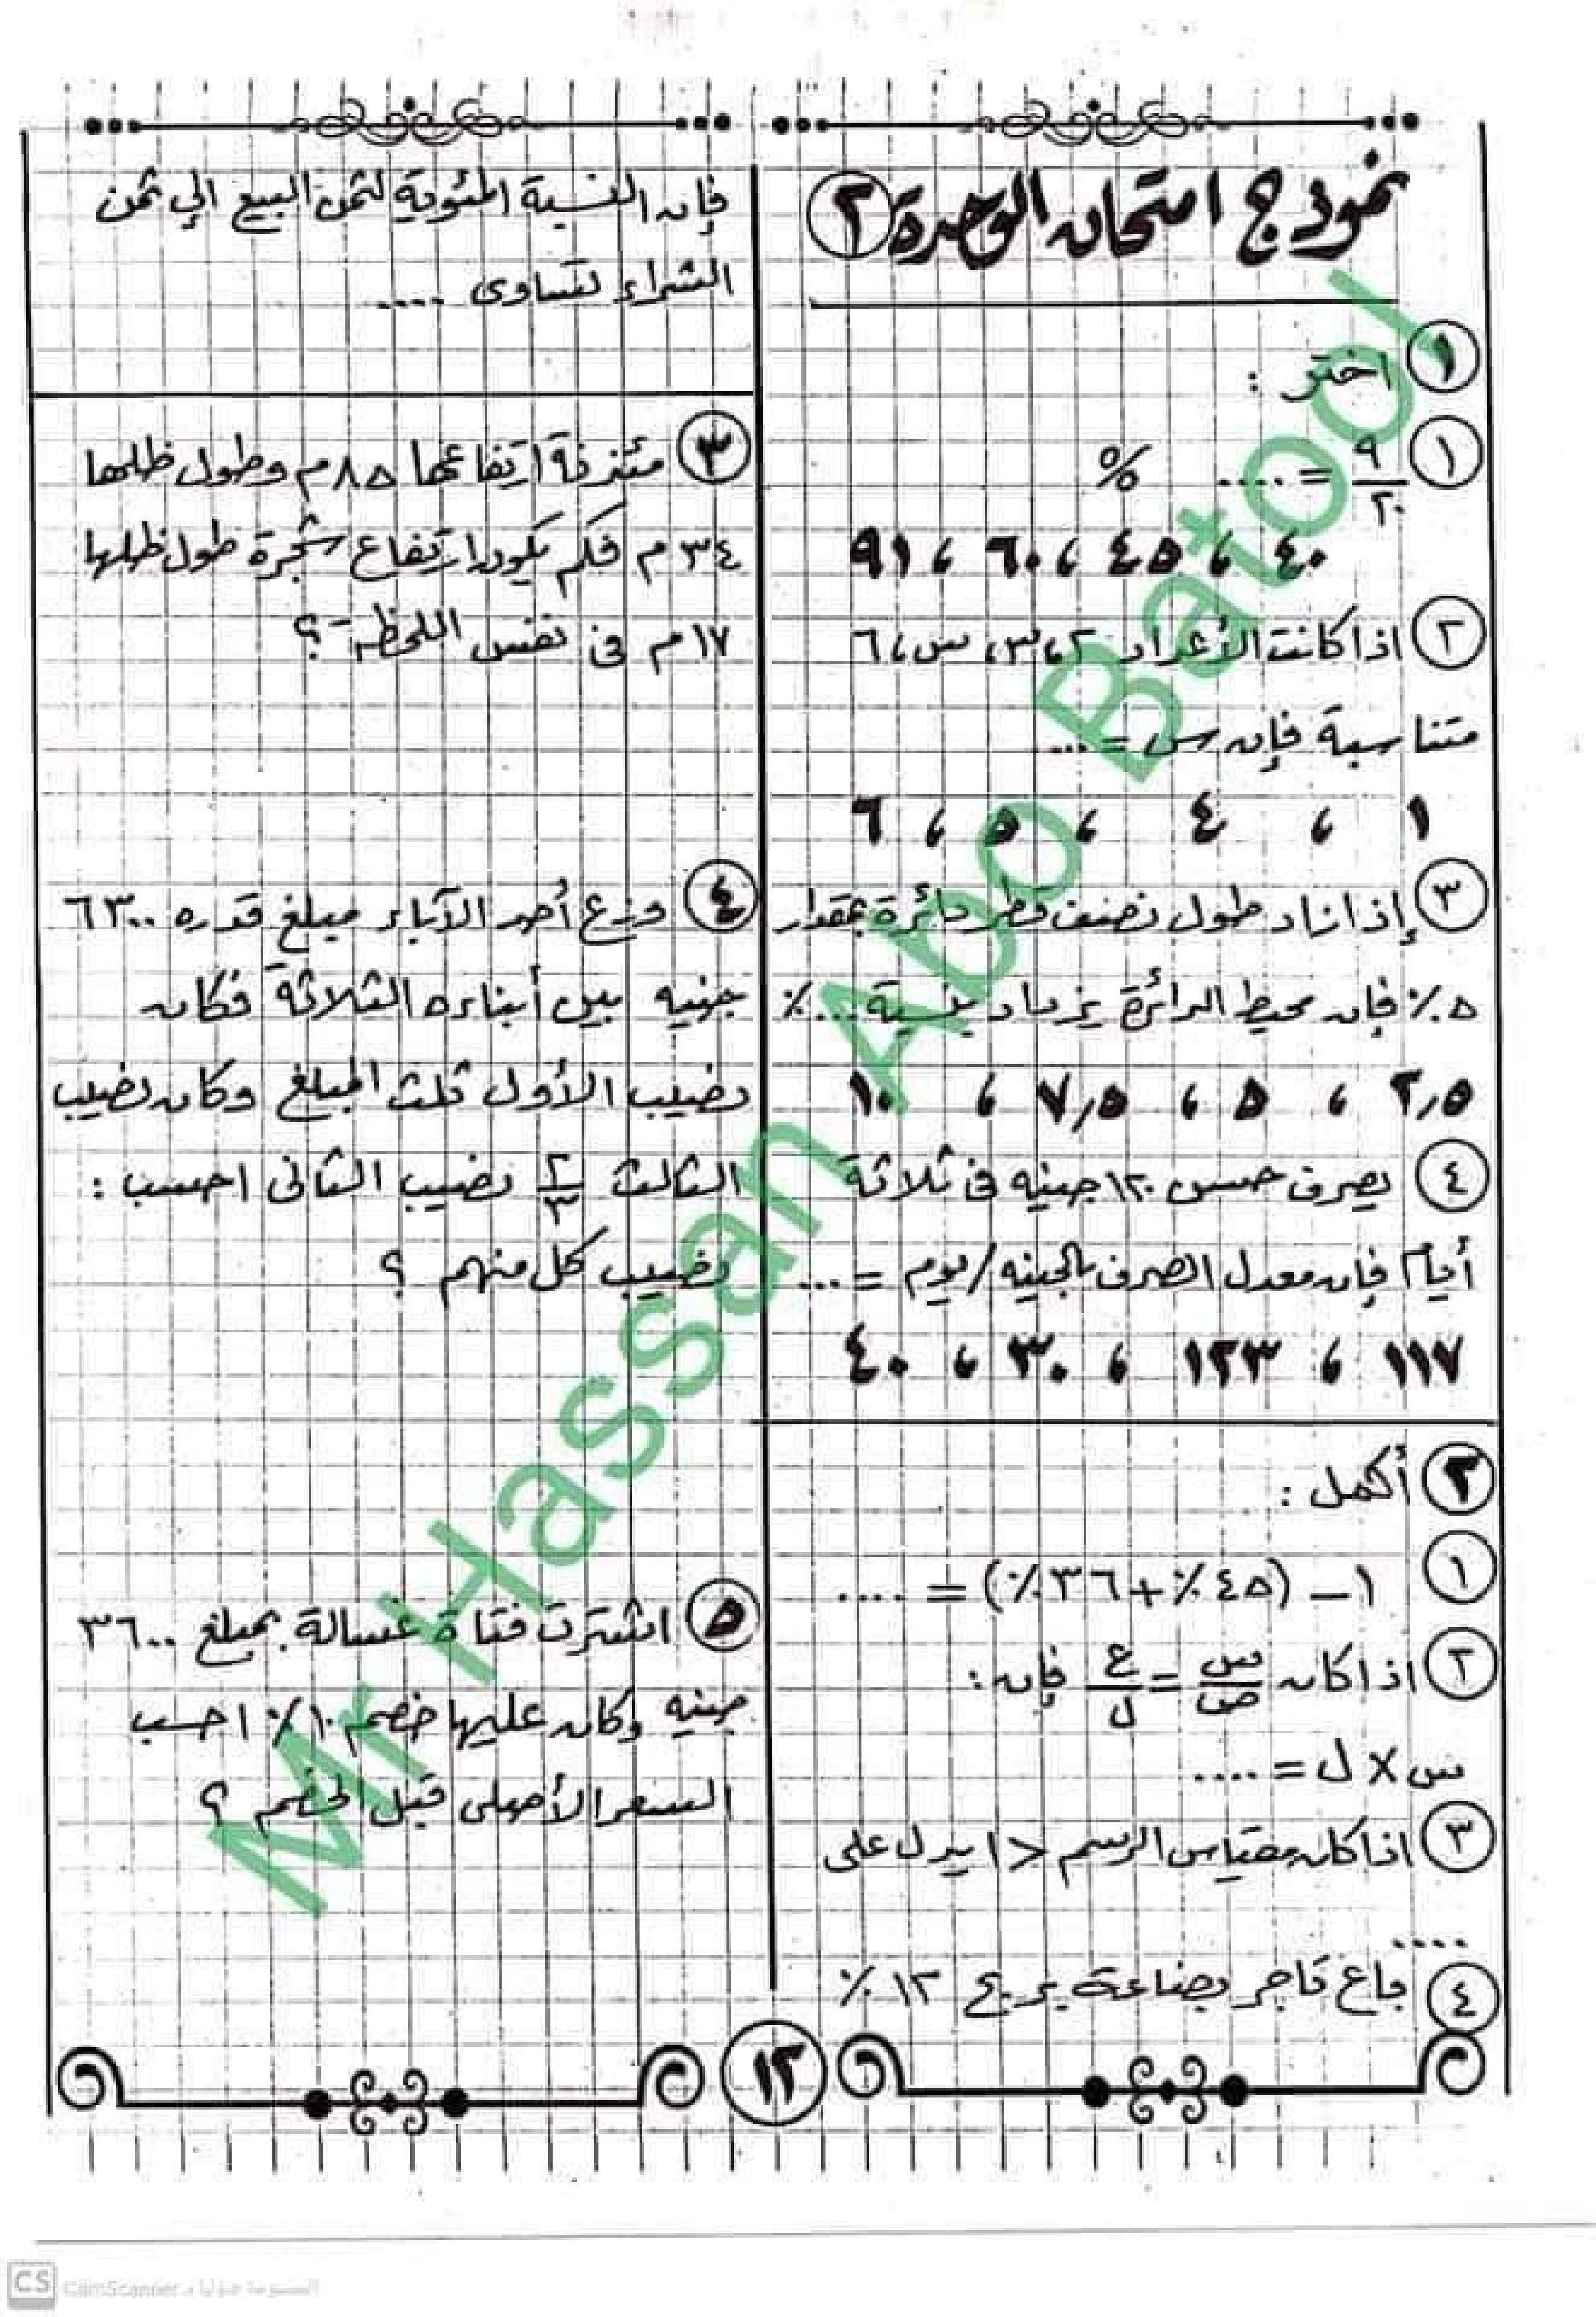 نموذج امتحان الوحدة ٢
١ اختر :
١ ٩/٢٠ = .... %
٤٠ ، ٤٥ ، ٦٠ ، ٩١
٢ اذا كانت الأعداد ٢، ٣، س، ٦
متناسبة فإن س = ...
١ ، ٤ ، ٥ ، ٦
٣ إذا زاد طول نصف قطر دائرة بمقدار
٥٪ فإن محيط الدائرة يزداد بنسبة ...٪
٢,٥ ، ٥ ، ٧,٥ ، ١٠
٤ يصرف حسن ١٢٠ جنيه فى ثلاثة
أيام فإن معدل الصرف بالجنيه/يوم = ...
١١٧ ، ١٢٣ ، ٣٠ ، ٤٠
٢ أكمل :
١ ١ – (٤٥٪ + ٣٦٪) = ....
٢ اذا كان س/ص = ع/ل فإن :
س × ل = ....
٣ اذا كان مقياس الرسم > ١ يدل على
....
٤ باع تاجر بضاعة بربح ١٢٪
فإن النسبة المئوية لثمن البيع إلي ثمن
الشراء تساوى ....
٣ مئذنة ارتفاعها ٨٥م وطول ظلها
٣٤م فكم يكون ارتفاع شجرة طول ظلها
١٧م فى نفس اللحظة ؟
٤ وزع أحد الآباء مبلغ قدره ٦٣٠٠
جنيه بين أبناءه الثلاثة فكان
نصيب الأول ثلث المبلغ وكان نصيب
الثالث ٢/٣ نصيب الثانى احسب :
نصيب كل منهم ؟
٥ اشترت فتاة غسالة بمبلغ ٣٦٠٠
جنيه وكان عليها خصم ١٠٪ احسب
السعر الأصلى قبل الخصم ؟
١٢
Mr Hassan Abo Batool
CS CamScanner